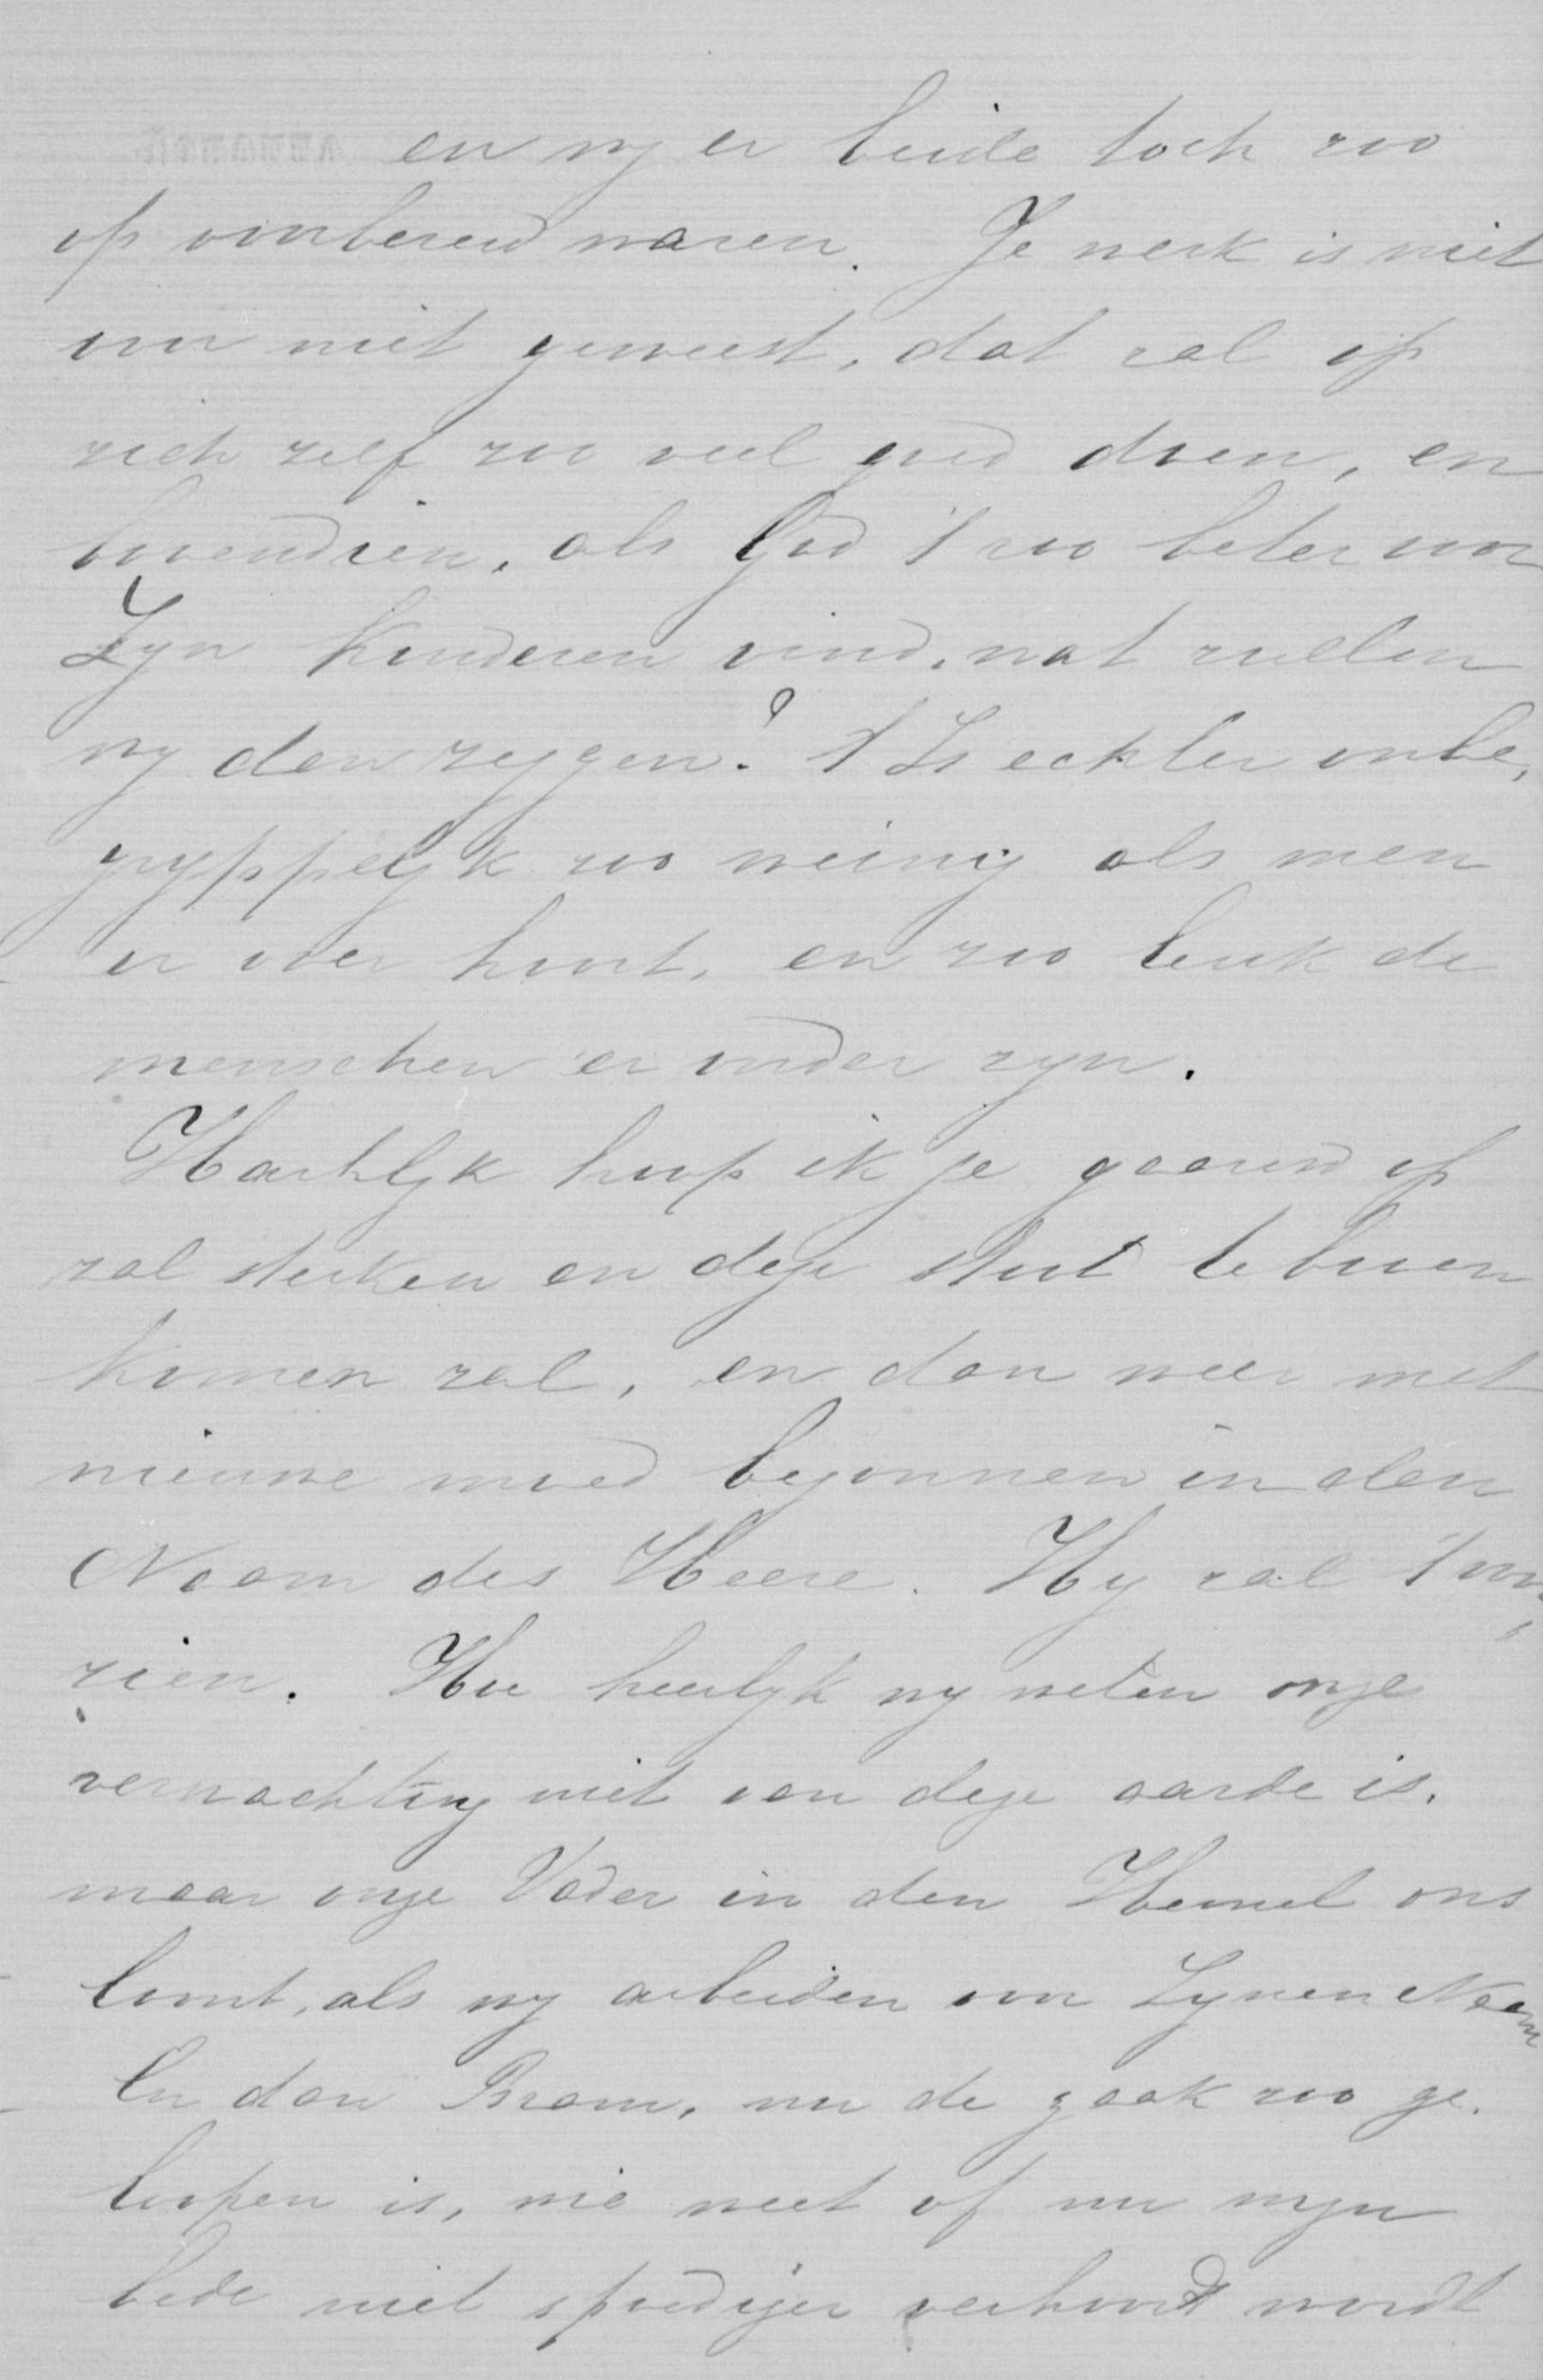 en wy er beide toch zoo
op voorbereid waren. Je werk is niet
voor niet geweest, dat zal op
zich zelf zoo veel goed doen, en
bovendien, als God 't zoo beter voor
Zyn kinderen vind, wat zullen
wy dan zeggen? 't Is echter onbe,
gryppelyk zoo weinig als men
er over hoort, en zoo leuk de
menschen er onder zyn.
Hartelyk hoop ik je gaauw op
zal steken en deze stoot te boven
komen zal, en dan weer met
nieuwe moed begonnen in den
Naam des Heere. Hy zal 't voor,
zien. Hoe heerlyk wy weten onze
verwachting niet van deze aarde is.
maar onze Vader in den Hemel ons
loont, als wy arbeiden voor Zynen Naam
En dan Bram, nu de zaak zoo ge.
loopen is, wie weet of nu myn
bede niet spoediger verhoord wordt